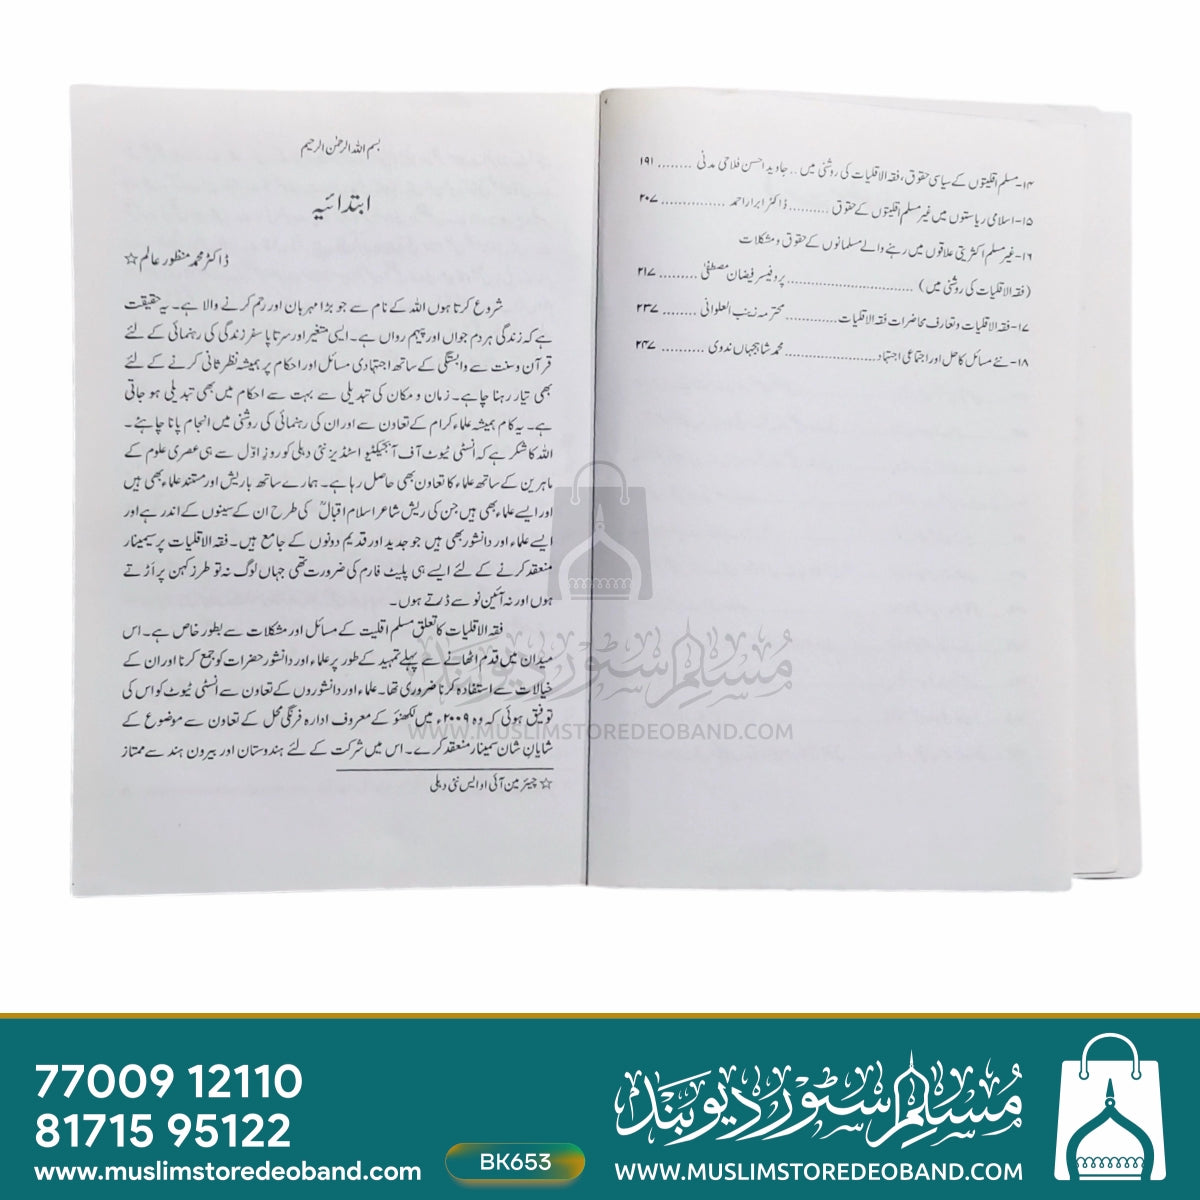 ۱۴-مسلم اقلیتوں کے سیاسی حقوق، فقہ الاقلیات کی روشنی میں .. جاوید احسن فلاحی مدنی ........ ۱۹۱
۱۵-اسلامی ریاستوں میں غیر مسلم اقلیتوں کے حقوق .......... ڈاکٹر ابرار احمد ............... ۲۰۷
۱۶-غیر مسلم اکثریتی علاقوں میں رہنے والے مسلمانوں کے حقوق و مشکلات
(فقہ الاقلیات کی روشنی میں) .............................. پروفیسر فیضان مصطفیٰ ......... ۲۱۷
۱۷-فقہ الاقلیات و تعارف محاضرات فقہ الاقلیات ............ محترمہ زینب العلوانی ........ ۲۳۷
۱۸-نئے مسائل کا حل اور اجتماعی اجتہاد ...................... محمد شاہجہاں ندوی .......... ۲۴۷
بسم اللہ الرحمٰن الرحیم
ابتدائیہ
ڈاکٹر محمد منظور عالم ☆
شروع کرتا ہوں اللہ کے نام سے جو بڑا مہربان اور رحم کرنے والا ہے۔ یہ حقیقت
ہے کہ زندگی ہر دم جواں اور پیہم رواں ہے۔ ایسی متغیر اور سرتاپا سفر زندگی کی رہنمائی کے لئے
قرآن وسنت سے وابستگی کے ساتھ اجتہادی مسائل اور احکام پر ہمیشہ نظر ثانی کرنے کے لئے
بھی تیار رہنا چاہے۔ زمان و مکان کی تبدیلی سے بہت سے احکام میں بھی تبدیلی ہو جاتی
ہے۔ یہ کام ہمیشہ علماء کرام کے تعاون سے اور ان کی رہنمائی کی روشنی میں انجام پانا چاہئے۔
اللہ کا شکر ہے کہ انسٹی ٹیوٹ آف آبجیکٹیو اسٹڈیز نئی دہلی کو روز اوّل سے ہی عصری علوم کے
ماہرین کے ساتھ علماء کا تعاون بھی حاصل رہا ہے۔ ہمارے ساتھ باریش اور مستند علماء بھی ہیں
اور ایسے علماء بھی ہیں جن کی ریش شاعر اسلام اقبالؒ کی طرح ان کے سینوں کے اندر ہے اور
ایسے علماء اور دانشور بھی ہیں جو جدید اور قدیم دونوں کے جامع ہیں۔ فقہ الاقلیات پر سیمینار
منعقد کرنے کے لئے ایسے ہی پلیٹ فارم کی ضرورت تھی جہاں لوگ نہ تو طرز کہن پر اڑتے
ہوں اور نہ آئین نو سے ڈرتے ہوں۔
فقہ الاقلیات کا تعلق مسلم اقلیت کے مسائل اور مشکلات سے بطور خاص ہے۔ اس
میدان میں قدم اٹھانے سے پہلے تمہید کے طور پر علماء اور دانشور حضرات کو جمع کرنا اور ان کے
خیالات سے استفادہ کرنا ضروری تھا۔ علماء اور دانشوروں کے تعاون سے انسٹی ٹیوٹ کو اس کی
توفیق ہوئی کہ وہ ۲۰۰۹ء میں لکھنؤ کے معروف ادارہ فرنگی محل کے تعاون سے موضوع کے
شایان شان سمینار منعقد کرے۔ اس میں شرکت کے لئے ہندوستان اور بیرون ہند سے ممتاز
☆ چیئر مین آئی او ایس نئی دہلی
مسلم سٹور دیوبند
WWW.MUSLIMSTOREDEOBAND.COM
77009 12110
81715 95122
www.muslimstoredeoband.com
BK653
مسلم سٹور دیوبند
WWW.MUSLIMSTOREDEOBAND.COM